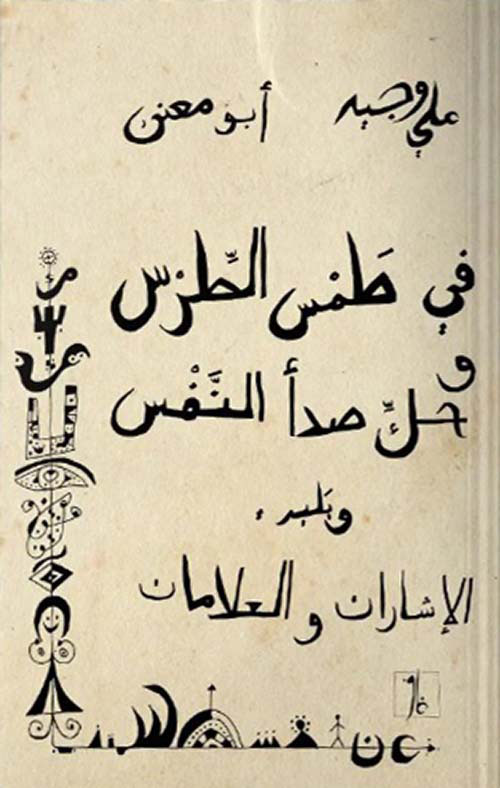 علي وجيه أبو معنى
في طَمْس الطِّرْس
و
حكِّ صدأ النَّفْس
ويليه:
الإشارات والعلامات